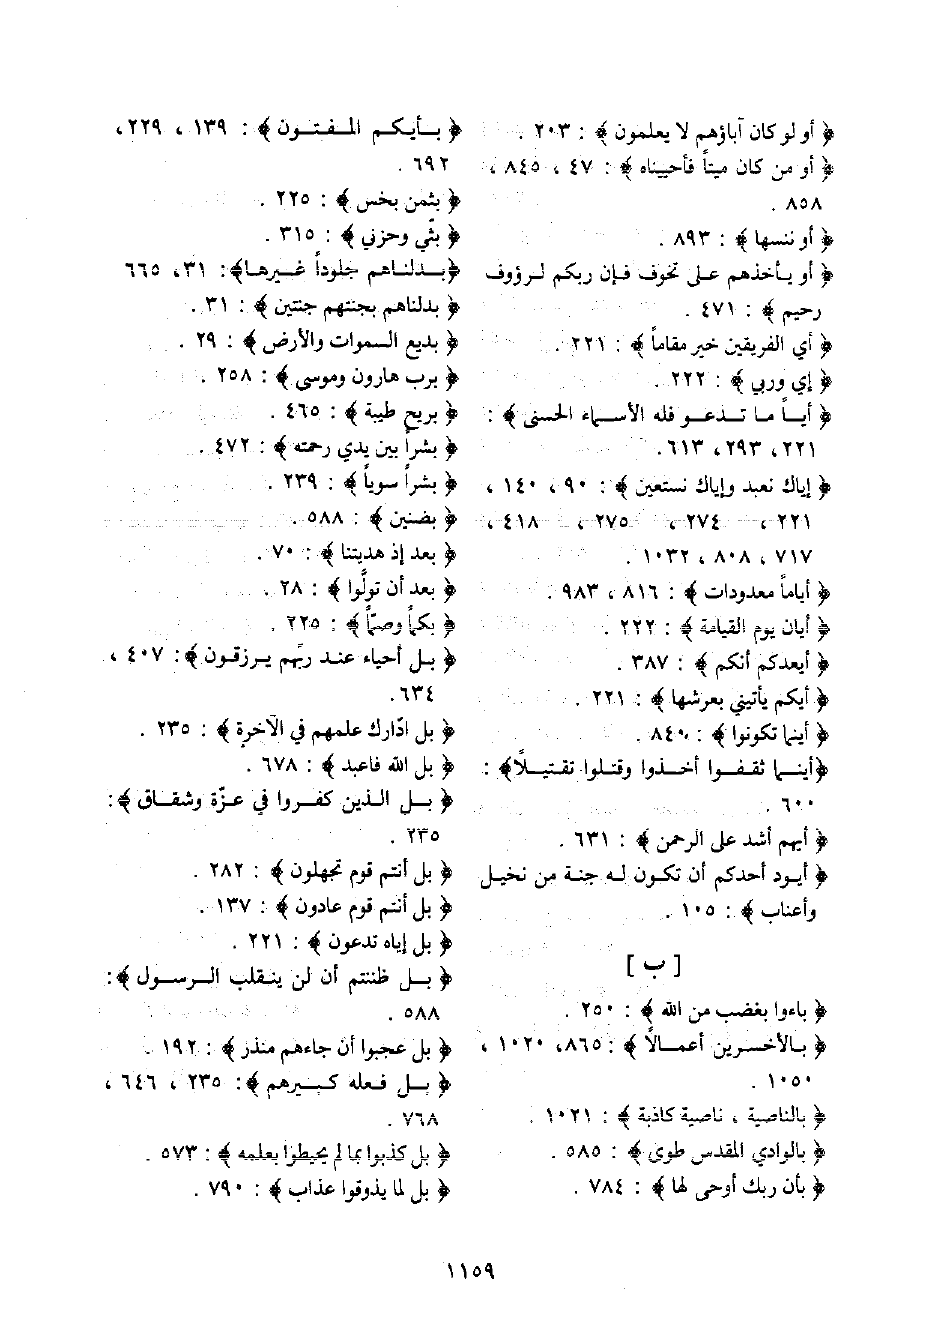 ﴿ أو لو كان آباؤهم لا يعلمون ﴾ : ٢٠٣ .
﴿ أو من كان ميتاً فأحييناه ﴾ : ٤٧ ، ٨٤٥ ،
٨٥٨ .
﴿ أو ننسها ﴾ : ٨٩٣ .
﴿ أو يأخذهم على تخوف فإن ربكم لرؤوف
رحيم ﴾ : ٤٧١ .
﴿ أي الفريقين خير مقاماً ﴾ : ٢٢١ .
﴿ إي وربي ﴾ : ٢٢٢ .
﴿ أياً ما تدعو فله الأسماء الحسنى ﴾ :
٢٢١، ٢٩٣، ٦١٣.
﴿ إياك نعبد وإياك نستعين ﴾ : ٩٠ ، ١٤٠ ،
٢٢١ ، ٢٧٤ ، ٢٧٥ ، ٤١٨ ،
٧١٧ ، ٨٠٨ ، ١٠٣٢ .
﴿ أياماً معدودات ﴾ : ٨١٦ ، ٩٨٣ .
﴿ أيان يوم القيامة ﴾ : ٢٢٢ .
﴿ أيعدكم أنكم ﴾ : ٣٨٧ .
﴿ أيكم يأتيني بعرشها ﴾ : ٢٢١ .
﴿ أينما تكونوا ﴾ : ٨٤٠ .
﴿أينما ثقفوا أخذوا وقتلوا تقتيلاً﴾ :
٦٠٠ .
﴿ أيهم أشد على الرحمن ﴾ : ٦٣١ .
﴿ أيود أحدكم أن تكون له جنة من نخيل
وأعناب ﴾ : ١٠٥ .
[ ب ]
﴿ باءوا بغضب من الله ﴾ : ٢٥٠ .
﴿ بالأخسرين أعمالاً ﴾ : ٨٦٥، ١٠٢٠ ،
١٠٥٠ .
﴿ بالناصية ، ناصية كاذبة ﴾ : ١٠٢١ .
﴿ بالوادي المقدس طوى ﴾ : ٥٨٥ .
﴿ بأن ربك أوحى لها ﴾ : ٧٨٤ .
﴿ بأيكم المفتون ﴾ : ١٣٩ ، ٢٢٩،
٦٩٢ .
﴿ بثمن بخس ﴾ : ٢٢٥ .
﴿ بثّي وحزني ﴾ : ٣١٥ .
﴿بدلناهم جلوداً غيرها﴾: ٣١، ٦٦٥
﴿ بدلناهم بجنتهم جنتين ﴾ : ٣١ .
﴿ بديع السموات والأرض ﴾ : ٢٩ .
﴿ برب هارون وموسى ﴾ : ٢٥٨ .
﴿ بريح طيبة ﴾ : ٤٦٥ .
﴿ بشراً بين يدي رحمته ﴾ : ٤٧٢ .
﴿ بشراً سوياً ﴾ : ٢٣٩ .
﴿ بضنين ﴾ : ٥٨٨ .
﴿ بعد إذ هديتنا ﴾ : ٧٠ .
﴿ بعد أن تولّوا ﴾ : ٢٨ .
﴿ بكماً وصمّاً ﴾ : ٢٢٥ .
﴿ بل أحياء عند ربّهم يرزقون ﴾: ٤٠٧ ،
٦٣٤.
﴿ بل ادّارك علمهم في الآخرة ﴾ : ٢٣٥ .
﴿ بل الله فاعبد ﴾ : ٦٧٨ .
﴿ بل الذين كفروا في عزّة وشقاق ﴾:
٢٣٥ .
﴿ بل أنتم قوم تجهلون ﴾ : ٢٨٢ .
﴿ بل أنتم قوم عادون ﴾ : ١٣٧ .
﴿ بل إياه تدعون ﴾ : ٢٢١ .
﴿ بل ظننتم أن لن ينقلب الرسول ﴾:
٥٨٨ .
﴿ بل عجبوا أن جاءهم منذر ﴾ : ١٩٢ .
﴿ بل فعله كبيرهم ﴾: ٢٣٥ ، ٦٤٦ ،
٧٦٨ .
﴿ بل كذبوا بما لم يحيطوا بعلمه ﴾ : ٥٧٣ .
﴿ بل لما يذوقوا عذاب ﴾ : ٧٩٠ .
١١٥٩